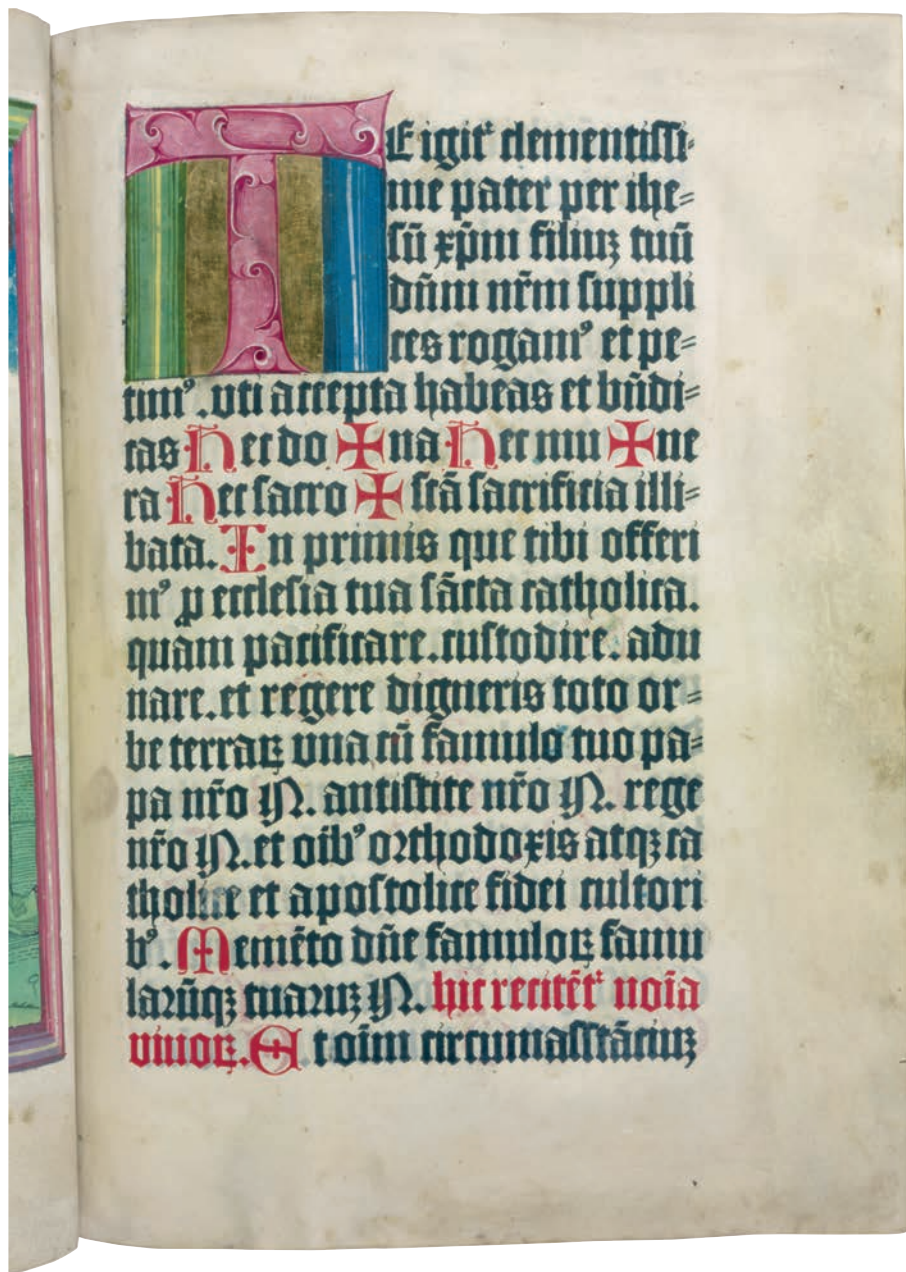 TE igit᷑ clementissi-
me pater per ihe-
sū xp̄m filiuꝫ tuū
dn̄m nr̄m suppli
ces rogamꝰ et pe-
timꝰ. vti accepta habeas et bn̄di-
cas Hec do ✠ na Hec mu ✠ ne
ra Hec sacro ✠ sc̄ā sacrificia illi-
bata. In primis que tibi offeri
mꝰ ꝓ ecclesia tua sācta catholica.
quam pacificare. custodire. adu
nare. et regere digneris toto or-
be terraꝝ vna cū famulo tuo pa-
pa nr̄o N. antistite nr̄o N. rege
nr̄o N. et oīb’ orthodoxis atqꝫ ca
tholice et apostolice fidei cultori
b’. Memēto dn̄e famuloꝝ famu
larūqꝫ tuaruꝫ N. hic recitēt᷑ noīa
viuoꝝ. Et oīm circumasstāciuꝫ